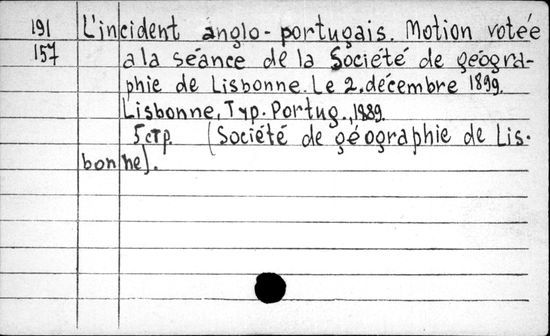 191 L'incident anglo-portugais. Motion votée
157 a la séance de la Société de géogra-
phie de Lisbonne. Le 2. décembre 1899.
Lisbonne, Typ. Portug., 1889.
5 стр. (Société de géographie de Lis-
bonne).